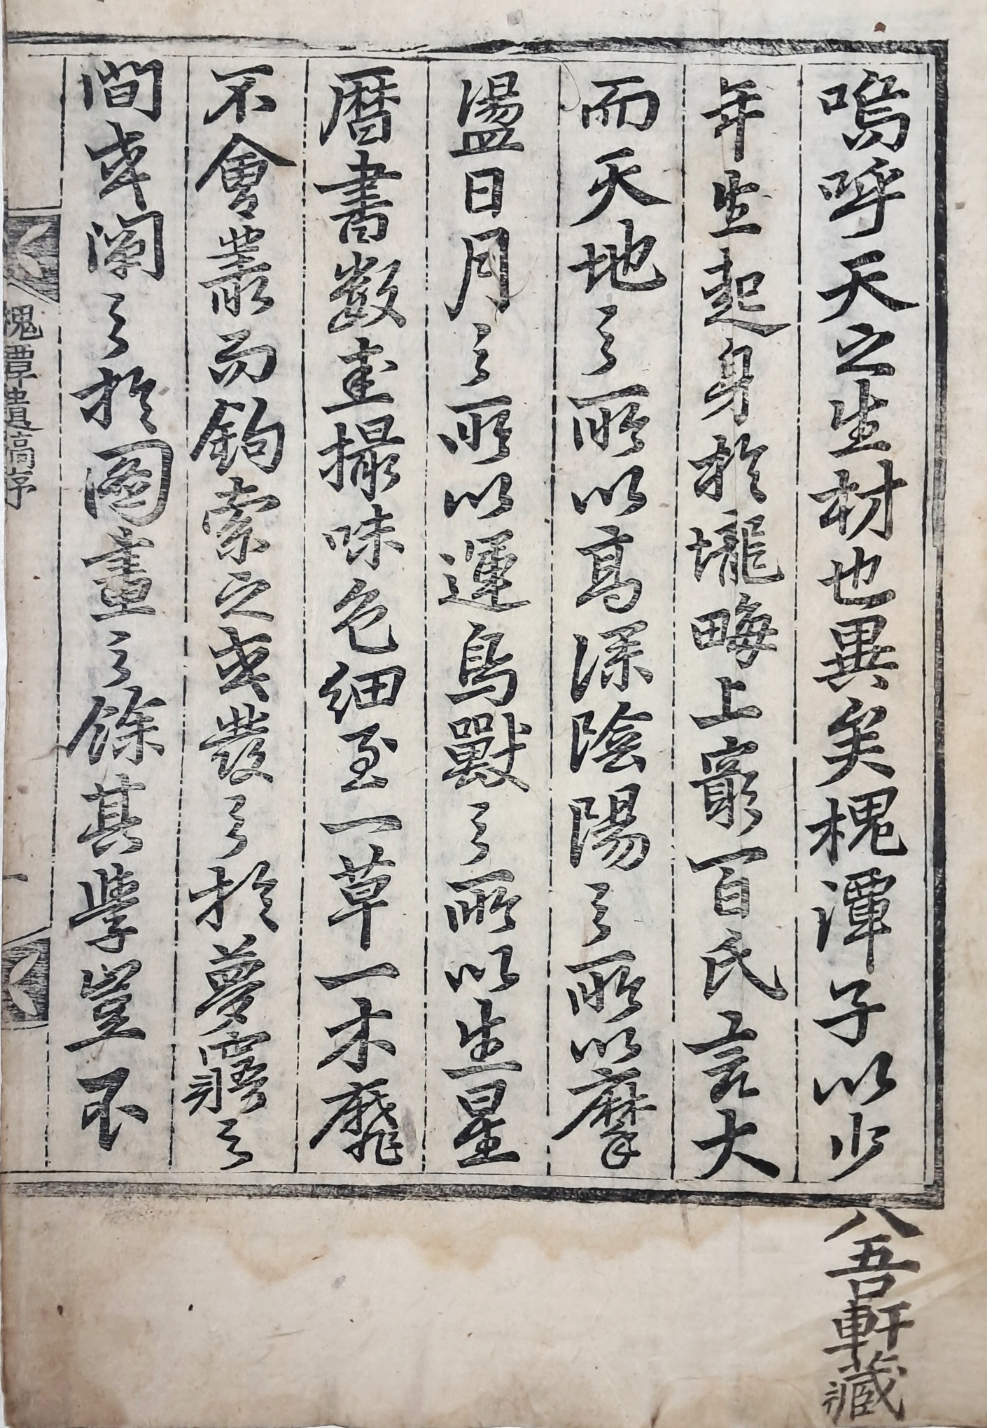 嗚呼天之生材也異矣槐潭子以少
年生起身於壠畮上窮百氏言大
而天地之所以高深陰陽之所以摩
盪日月之所以運鳥獸之所以生星
曆書數圭撮味色細至一草一木靡
不會叢而鉤索之或發之於夢寤之
間或闡之於圖畫之餘其學豈不
槐潭遺稿序
一
八吾軒藏